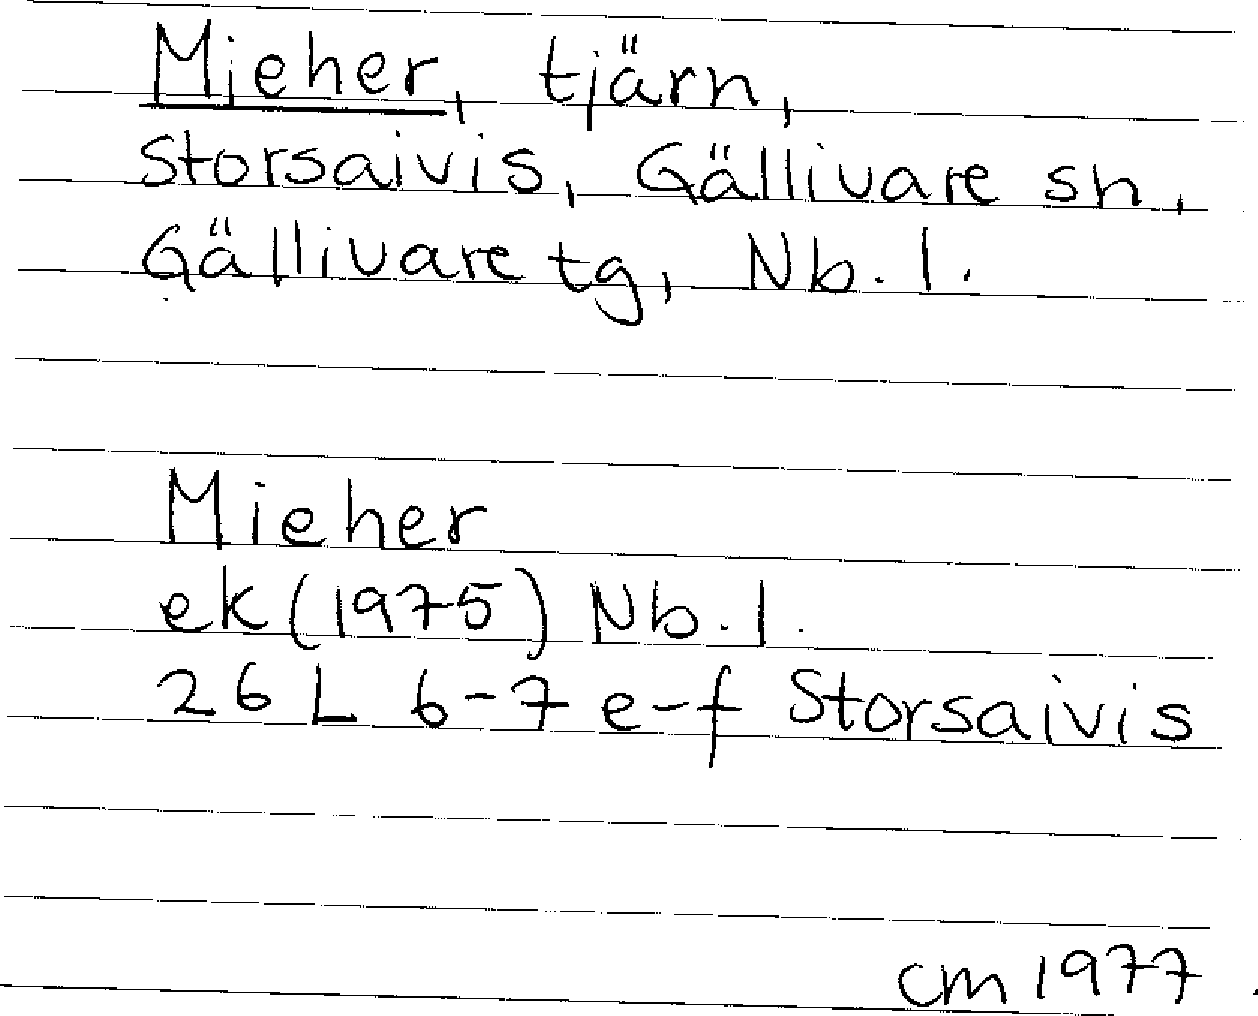 Mieher, tjärn,
Storsaivis, Gällivare sn,
Gällivare tg, Nb. l.
Mieher
ek (1975) Nb. l.
26 L 6-7 e-f Storsaivis
cm 1977